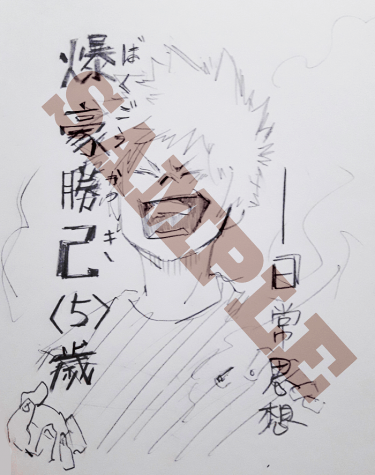 爆豪勝己〈5〉歳
ばくごうかっきー
―日常思想
SAMPLE